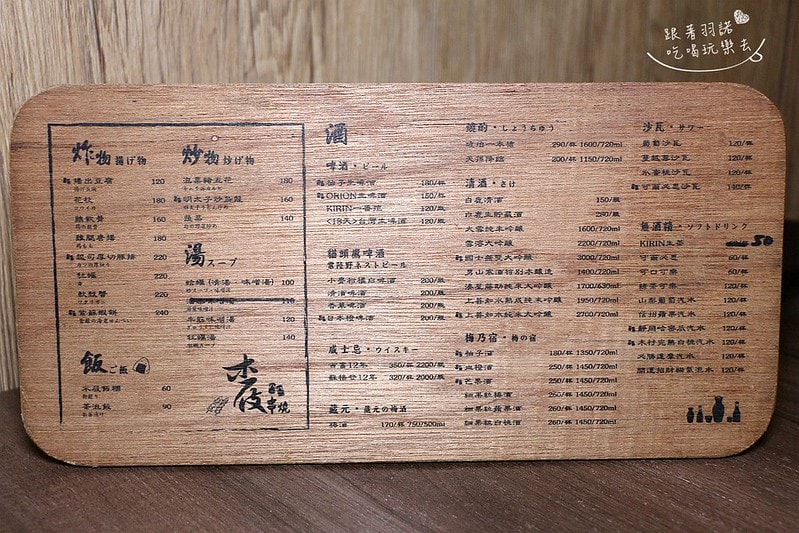 跟著羽諾
吃喝玩樂去
炸物 揚げ物
揚出豆腐 120
花枝 180
雞軟骨 160
雞腿唐揚 180
起司厚切豚排 220
牡蠣 220
軟殼蟹 220
紫蘇蝦餅 240
飯 ご飯
木屐飯糰 60
茶泡飯 90
炒物 炒げ物
泡菜豬五花 180
明太子炒烏龍 160
蔬菜 140
湯 スープ
蛤蠣(清湯・味噌湯) 100
110
味噌湯 120
牡蠣湯 140
木屐 串燒
酒
啤酒・ビール
柚子生啤酒 180/杯
ORION生啤酒 150/杯
KIRIN一番搾 200/瓶
<18天>台灣生啤酒 200/瓶
貓頭鷹啤酒
常陸野ネストビール
小麥柑橘白啤酒 200/瓶
清酒啤酒 200/瓶
香薑啤酒 200/瓶
日本檜啤酒 200/瓶
威士忌・ウイスキー
12年 350/杯 2200/瓶
蘇格登12年 320/杯 2000/瓶
藏元・蔵元の梅酒
梅酒 170/杯 750/500ml
燒酌・しょうちゅう
琉球一本槍 290/杯 1600/720ml
天孫降臨 200/杯 1150/720ml
清酒・さけ
白鹿清酒 150/瓶
白鹿生貯藏酒 280/瓶
大雪純米吟釀 1600/720ml
雪漫大吟釀 2200/720ml
國士無雙大吟釀 3000/720ml
男山寒酒特別本釀造 1400/720ml
湊屋藤助純米大吟釀 1700/630ml
上善如水熟成純米大吟釀 1950/720ml
上善如水純米大吟釀 2700/720ml
梅乃宿・梅の宿
柚子酒 180/杯 1350/720ml
血橙酒 250/杯 1450/720ml
芒果酒 250/杯 1450/720ml
細果粒梅酒 250/杯 1450/720ml
細果粒蘋果酒 260/杯 1450/720ml
細果粒白桃酒 260/杯 1450/720ml
沙瓦・サワー
葡萄沙瓦 120/杯
蔓越莓沙瓦 120/杯
水蜜桃沙瓦 120/杯
可爾必思沙瓦 140/杯
無酒精・ソフトドリンク
KIRIN生茶 50
可爾必思 60/杯
可口可樂 60/杯
綠茶可樂 120/杯
山梨葡萄汽水 120/杯
信州蘋果汽水 120/杯
靜岡哈密瓜汽水 120/杯
木村完熟白桃汽水 120/杯
必勝達摩汽水 120/杯
開運招財貓氣泡水 120/杯